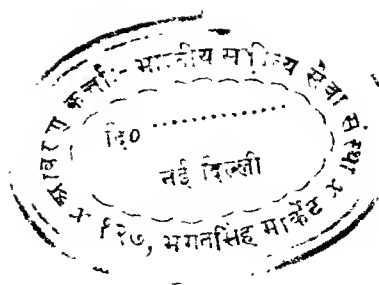 आवरण कर्त्ताः- भारतीय साहित्य सेवा संस्था
दि० ..............
नई दिल्ली
× १२७, भगतसिंह मार्केट ×